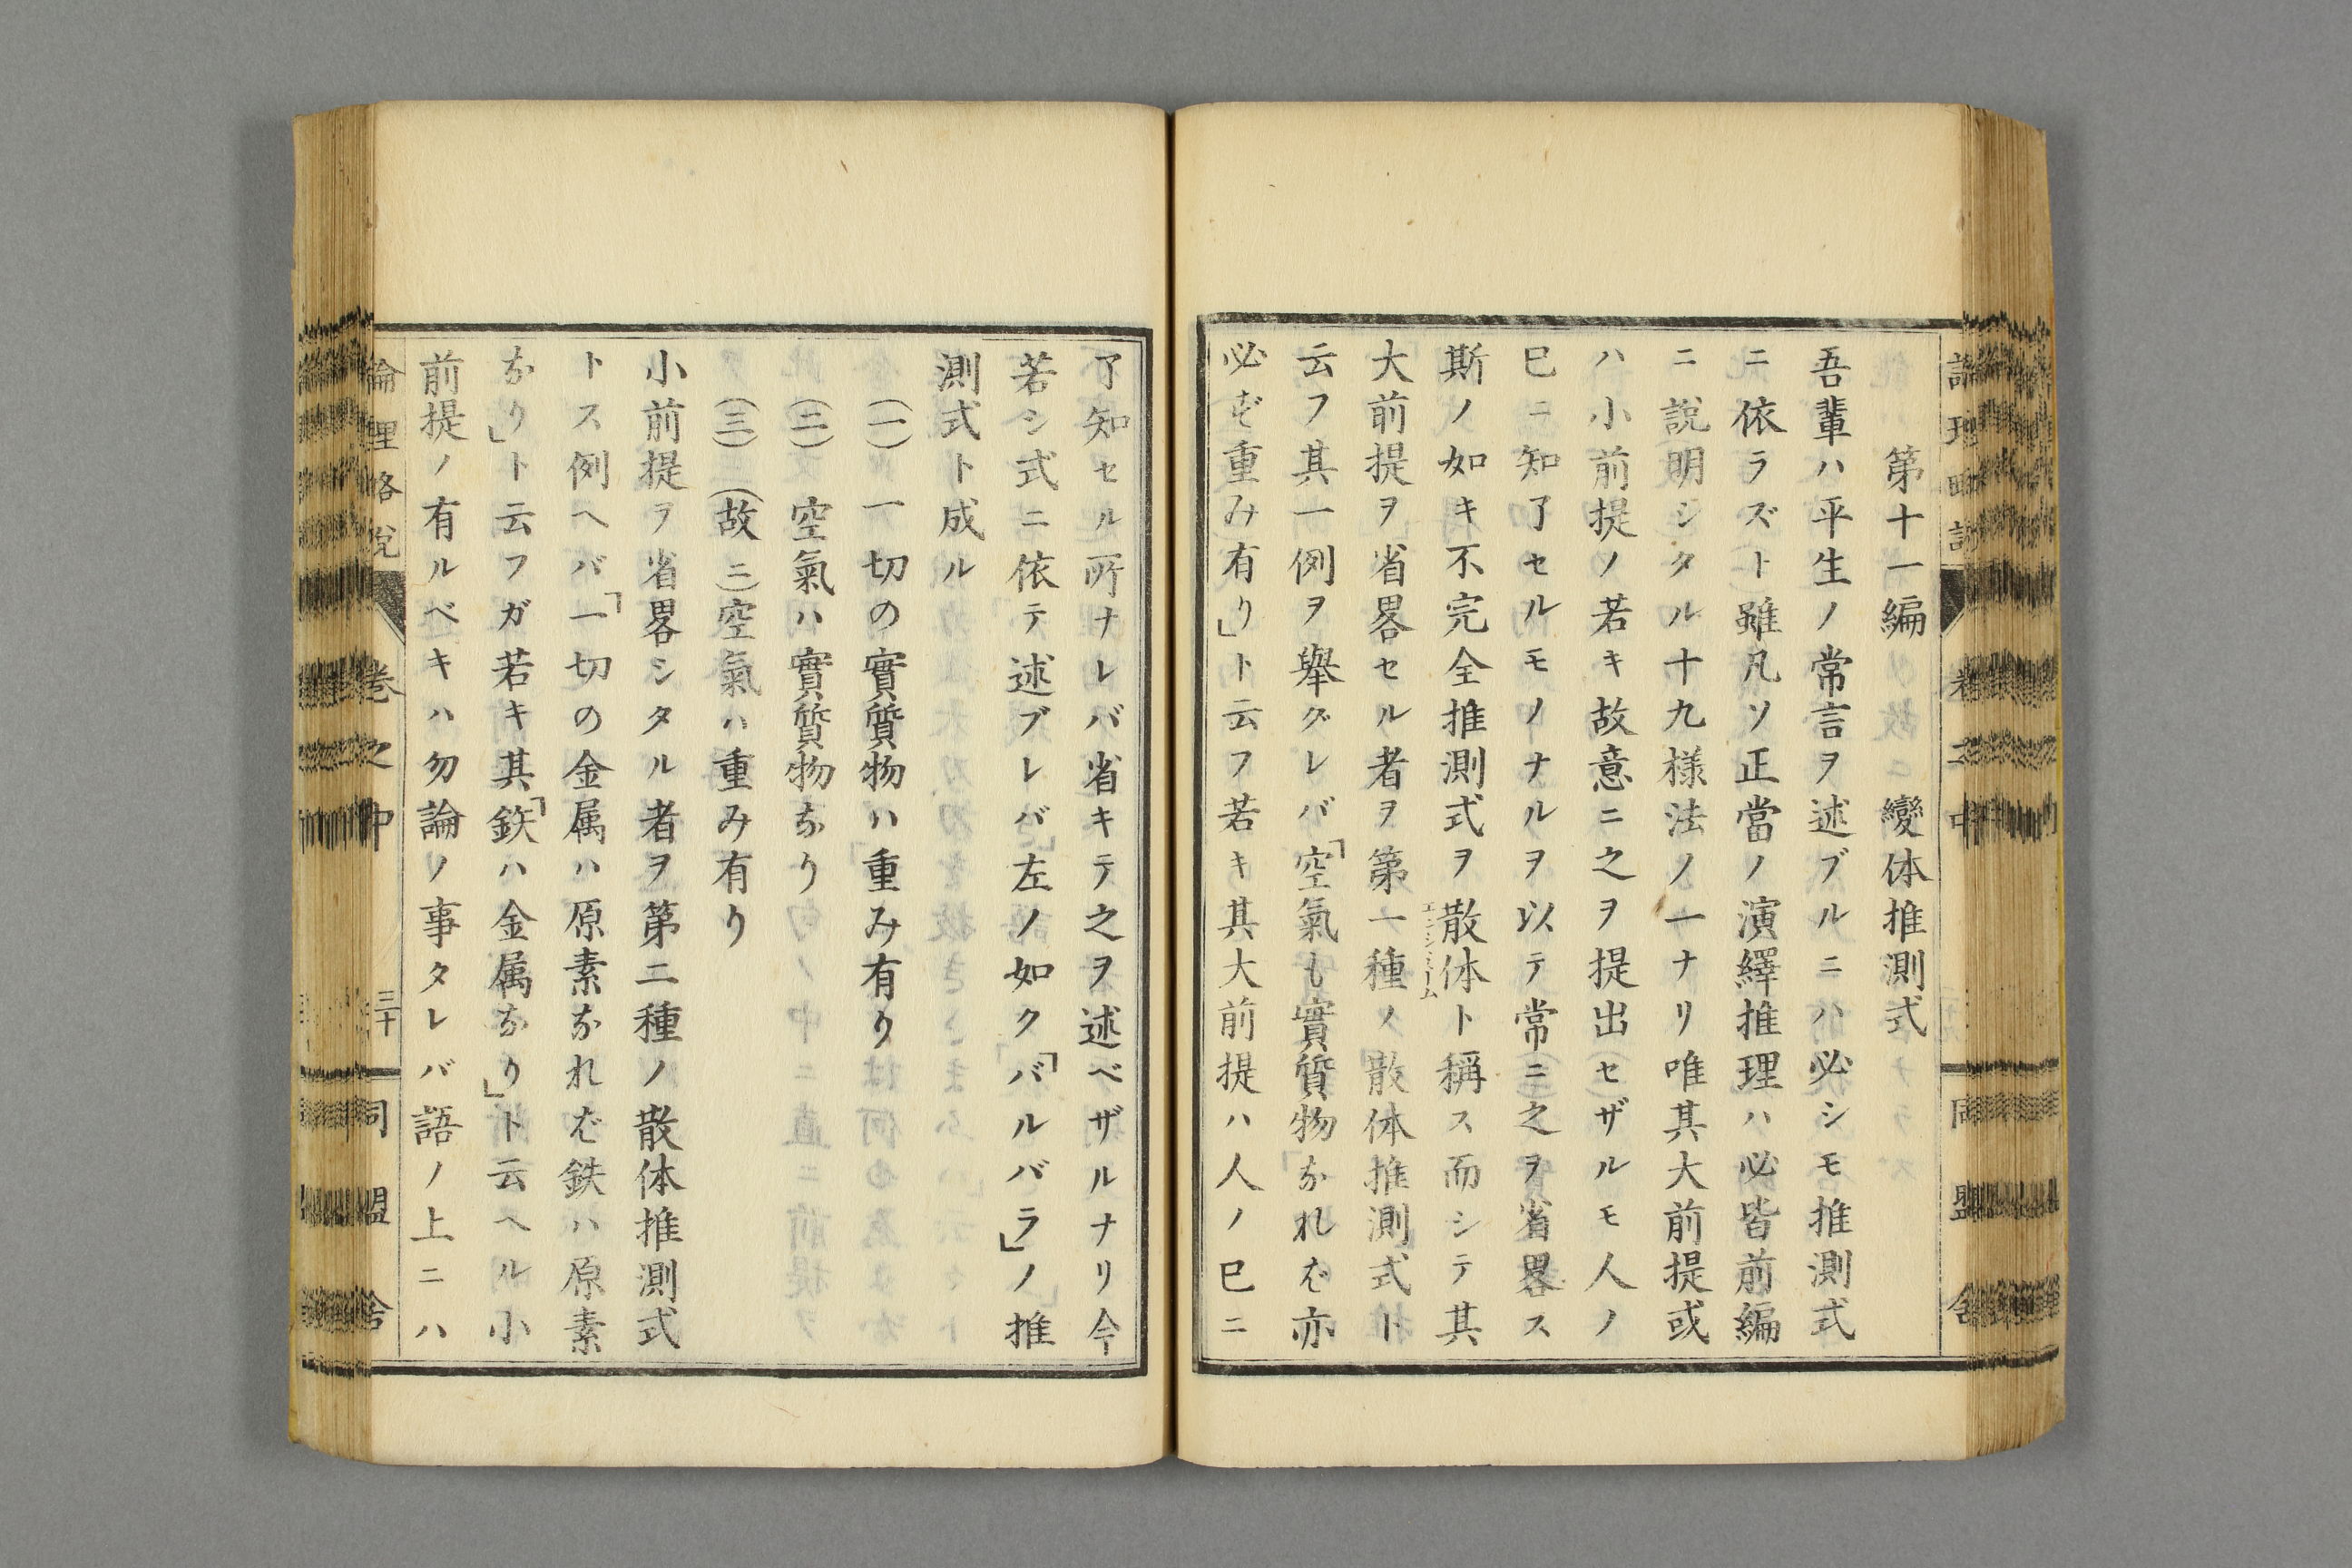 第十一編　變体推測式
吾輩ハ平生ノ常言ヲ述ブルニハ必シモ推測式
ニ依ラズト雖凡ソ正當ノ演繹推理ハ必皆前編
ニ說明シタル十九樣法ノ一ナリ唯其大前提或
ハ小前提ノ若キ故意ニ之ヲ提出セザルモ人ノ
巳ニ知了セルモノナルヲ以テ常ニ之ヲ省畧ス
斯ノ如キ不完全推測式ヲ散体ト稱ス而シテ其
大前提ヲ省畧セル者ヲ第一種ノ散体推測式ト
云フ其一例ヲ擧グレバ「空氣も實質物なれバ亦
必ず重み有り」ト云フ若キ其大前提ハ人ノ巳ニ
了知セル所ナレバ省キテ之ヲ述ベザルナリ今
若シ式ニ依テ述ブレバ左ノ如ク「バルバラ」ノ推
測式ト成ル
(一)　一切の實質物ハ重み有り
(二)　空氣ハ實質物なり
(三)　(故ニ)空氣ハ重み有り
小前提ヲ省畧シタル者ヲ第二種ノ散体推測式
トス例ヘバ「一切の金属ハ原素なれバ鉄ハ原素
なり」ト云フガ若キ其「鉄ハ金属なり」ト云ヘル小
前提ノ有ルベキハ勿論ノ事タレバ語ノ上ニハ
論理略說
卷之中
三十
同盟舎